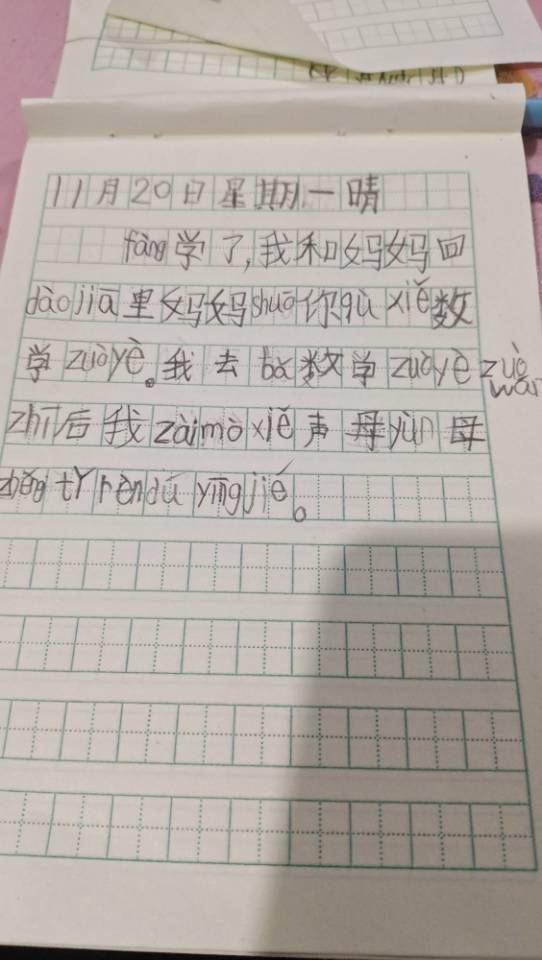 11月20日星期一晴
fàng学了,我和妈妈回
dào jiā里妈妈shuō你qù xiě数
学zuòyè。我去bǎ数学zuòyè zuò wán
zhī后我zài mò xiě声母yùn母
zhěng tǐ rèn dú yīng jié。